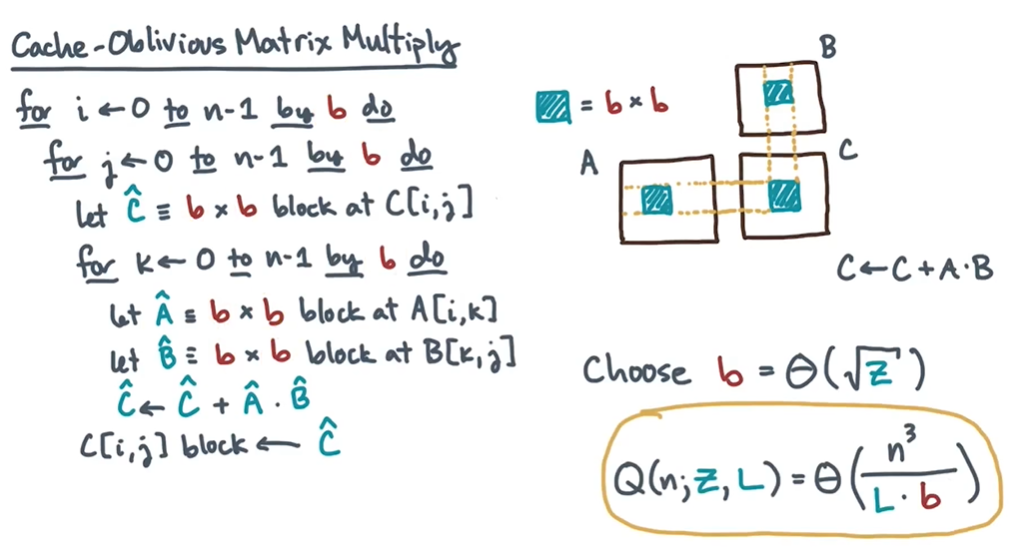 Cache-Oblivious Matrix Multiply
for i ← 0 to n-1 by b do
for j ← 0 to n-1 by b do
let Ĉ ≡ b × b block at C[i,j]
for k ← 0 to n-1 by b do
let Â ≡ b × b block at A[i,k]
let B̂ ≡ b × b block at B[k,j]
Ĉ ← Ĉ + Â · B̂
C[i,j] block ← Ĉ
= b × b
B
A
C
C ← C + A·B
Choose b = Θ(√Z)
Q(n; Z, L) = Θ(n³ / L · b)